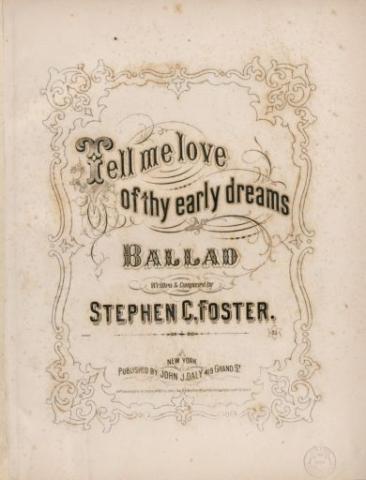 Tell me love
of thy early dreams
BALLAD
Written & Composed by
STEPHEN C. FOSTER.
NEW YORK
PUBLISHED BY JOHN J. DALY 419 GRAND ST.